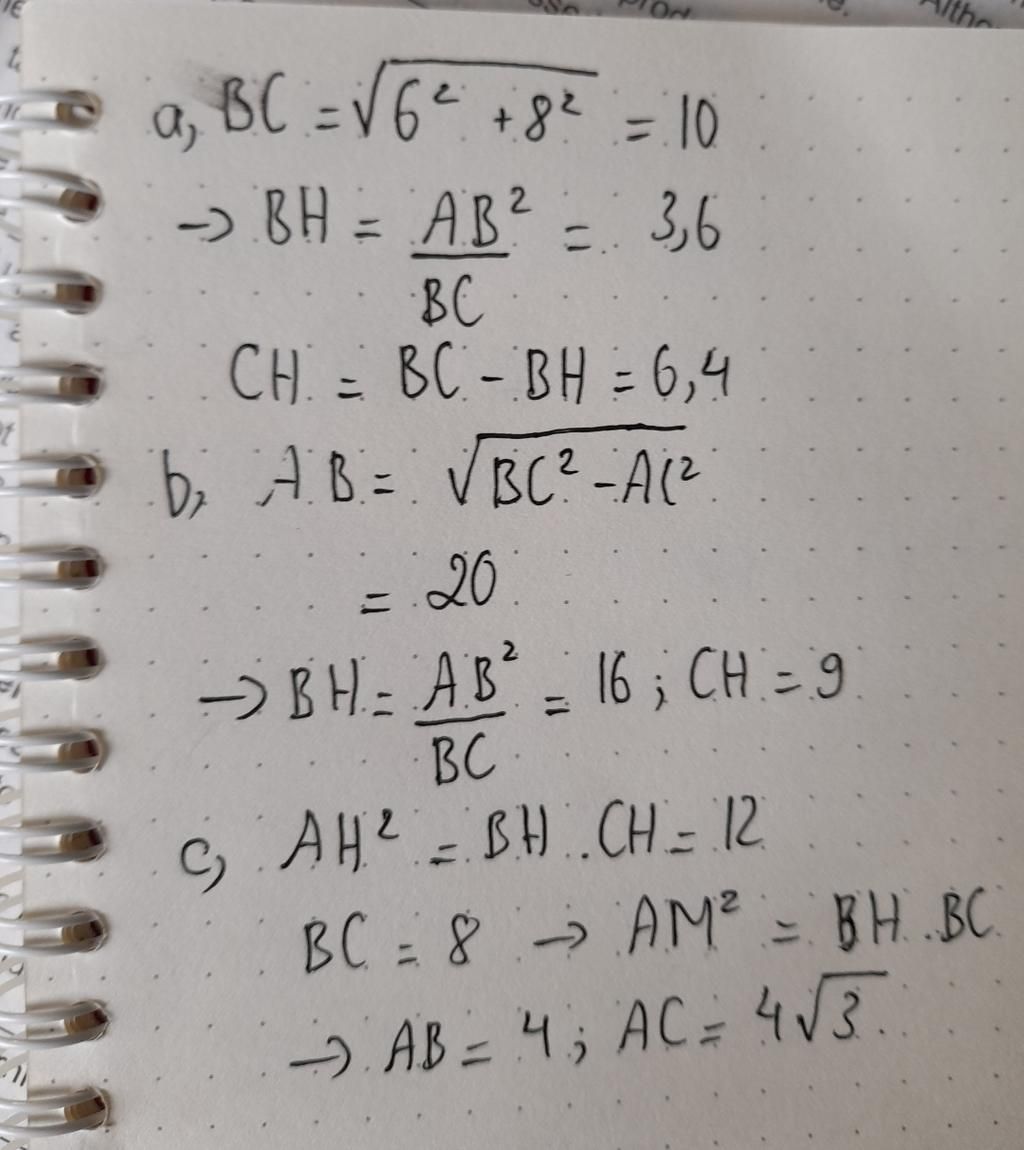 a, BC = √(6² + 8²) = 10
→ BH = AB²/BC = 3,6
CH = BC - BH = 6,4
b, AB = √(BC² - AC²)
= 20
→ BH = AB²/BC = 16 ; CH = 9
c, AH² = BH . CH = 12
BC = 8 → AM² = BH . BC
→ AB = 4 ; AC = 4√3